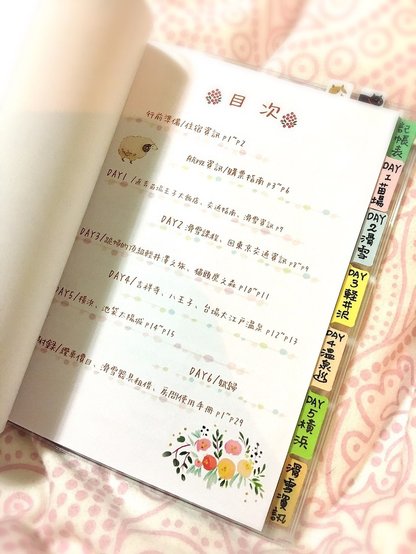 目次
行前準備/住宿資訊 p1~p2
航班資訊/購票指南 p3~p6
DAY1/苗場王子大飯店、交通指南、滑雪資訊 p7
DAY2 滑雪課程、回東京交通資訊 p8~p9
DAY3/輕井澤之旅、貓頭鷹之森 p10~p11
DAY4/吉祥寺、八王子、台場大江戶溫泉 p12~p13
DAY5/橫浜、池袋太陽城 p14~p15
DAY6/賦歸
附錄/纜車價目、滑雪器具租借、房間使用手冊 p17~p29
記帳表
DAY1苗場
DAY2滑雪
DAY3軽井沢
DAY4温泉
DAY5横浜
滑雪資訊